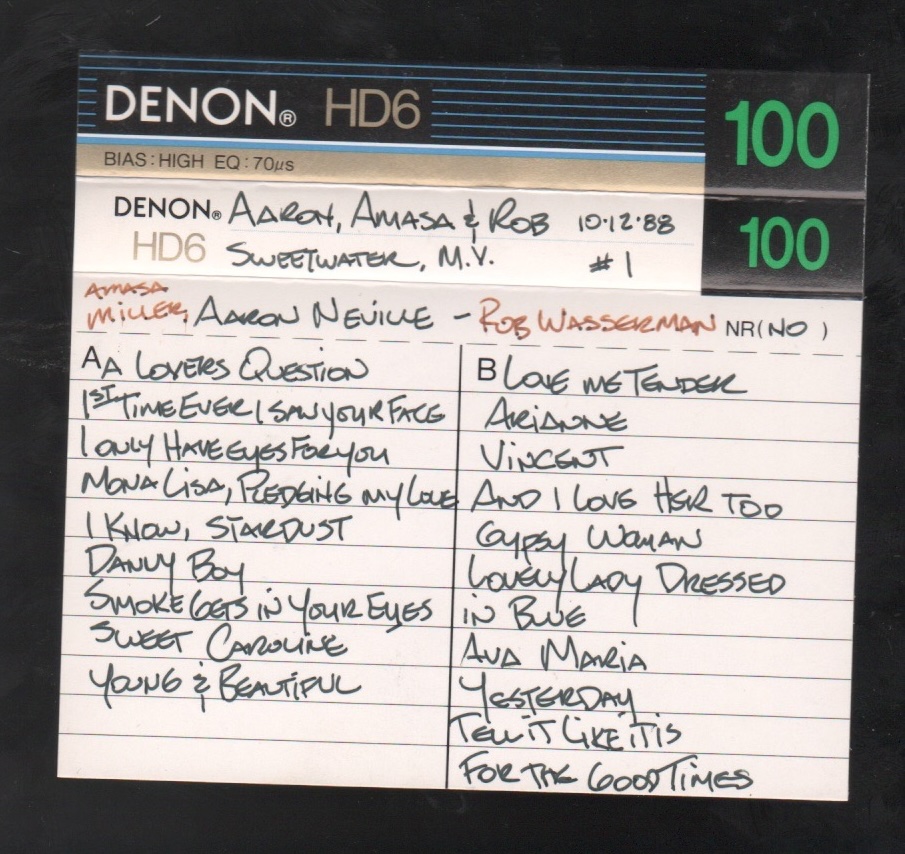 DENON® HD6 100
BIAS:HIGH EQ:70µs
DENON® AARON, AMASA & ROB 10·12·88 100
HD6 SWEETWATER, M.V. #1
AMASA
MILLER, AARON NEVILLE - ROB WASSERMAN NR(NO )
A A LOVERS QUESTION
1ST TIME EVER I SAW YOUR FACE
I ONLY HAVE EYES FOR YOU
MONA LISA, PLEDGING MY LOVE
I KNOW, STARDUST
DANNY BOY
SMOKE GETS IN YOUR EYES
SWEET CAROLINE
YOUNG & BEAUTIFUL
B LOVE ME TENDER
ARIANNE
VINCENT
AND I LOVE HER TOO
GYPSY WOMAN
LOVELY LADY DRESSED
IN BLUE
AVA MARIA
YESTERDAY
TELL IT LIKE IT IS
FOR THE GOOD TIMES